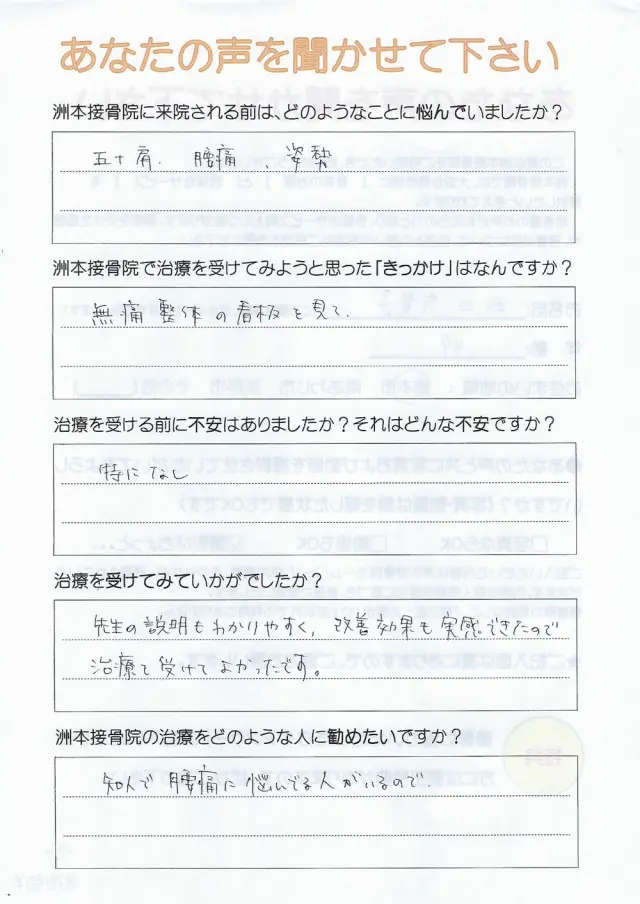 あなたの声を聞かせて下さい
洲本接骨院に来院される前は、どのようなことに悩んでいましたか？
五十肩、腰痛、姿勢
洲本接骨院で治療を受けてみようと思った「きっかけ」はなんですか？
無痛整体の看板を見て、
治療を受ける前に不安はありましたか？それはどんな不安ですか？
特になし
治療を受けてみていかがでしたか？
先生の説明もわかりやすく、改善効果も実感できたので
治療を受けてよかったです。
洲本接骨院の治療をどのような人に勧めたいですか？
知人で腰痛に悩んでる人がいるので、